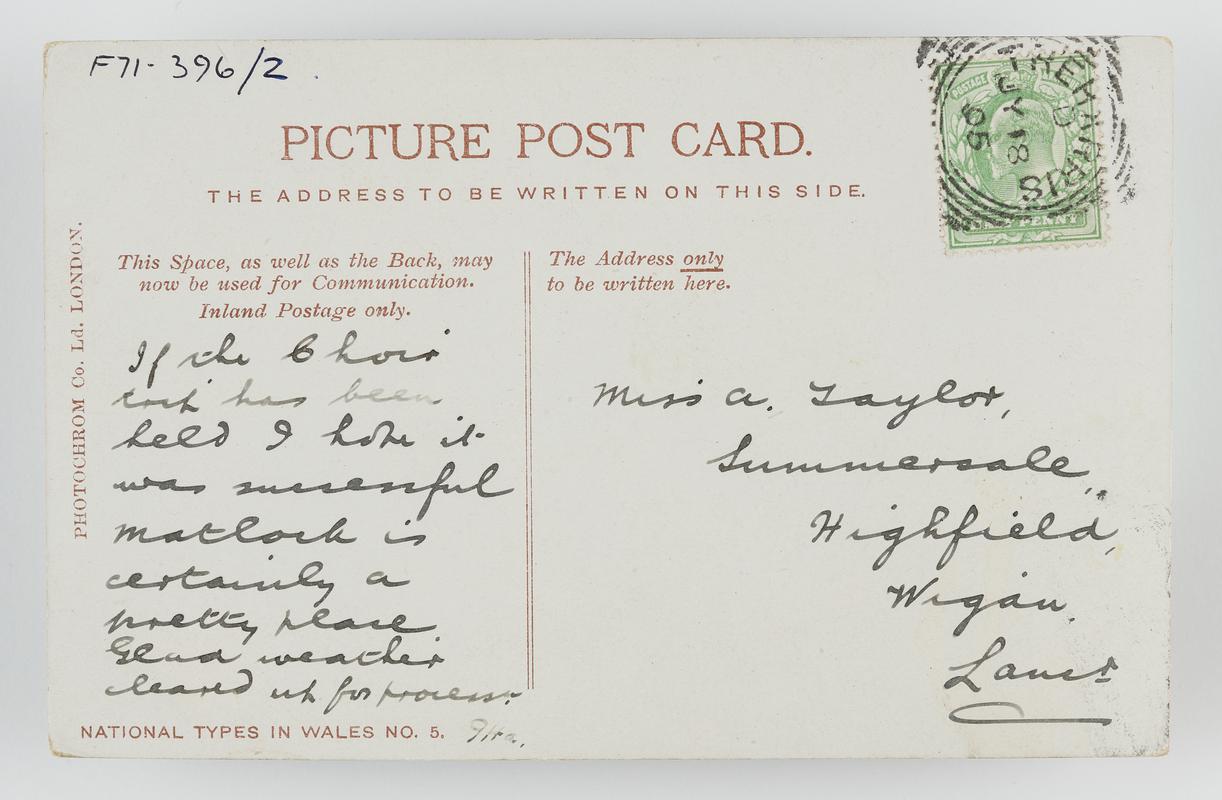 F71-396/2.
PICTURE POST CARD.
THE ADDRESS TO BE WRITTEN ON THIS SIDE.
PHOTOCHROM Co. Ld. LONDON.
This Space, as well as the Back, may
now be used for Communication.
Inland Postage only.
If the Choir
has been
held I hope it
was successful
Matlock is
certainly a
pretty place
Glad weather
cleared up for process:
NATIONAL TYPES IN WALES NO. 5.
The Address only
to be written here.
Miss A. Taylor,
Summersale,
Highfield,
Wigan,
Lancs
TREHARRIS
D
JY 18
05
POSTAGE
PENNY